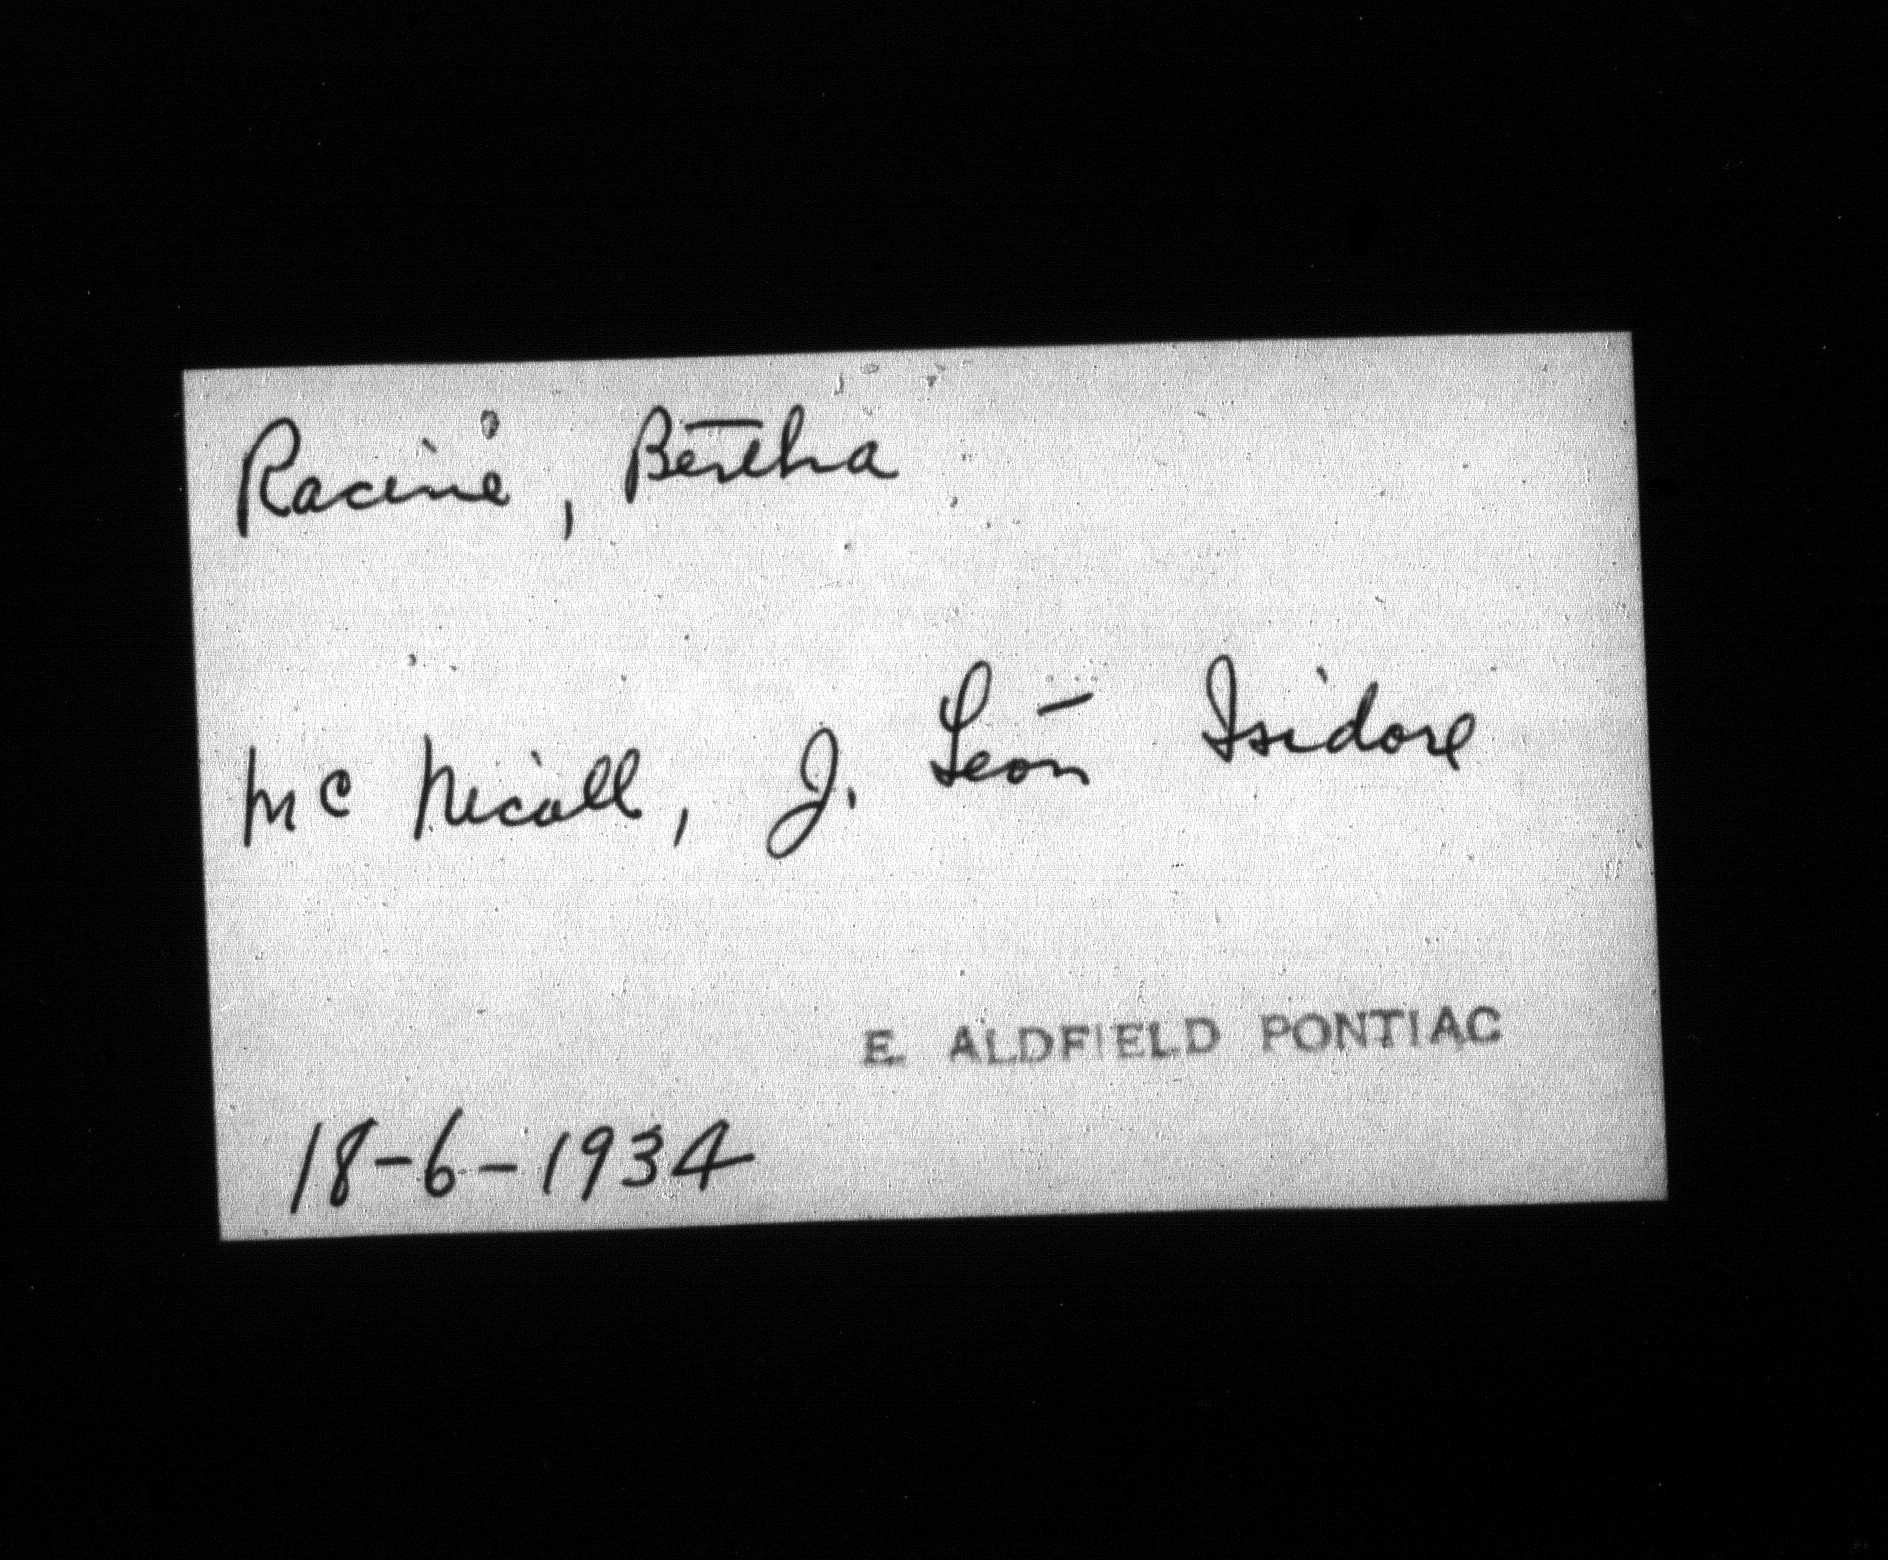 Racine, Bertha
Mc Nicoll, J. Léon Isidore
E. ALDFIELD PONTIAC
18-6-1934